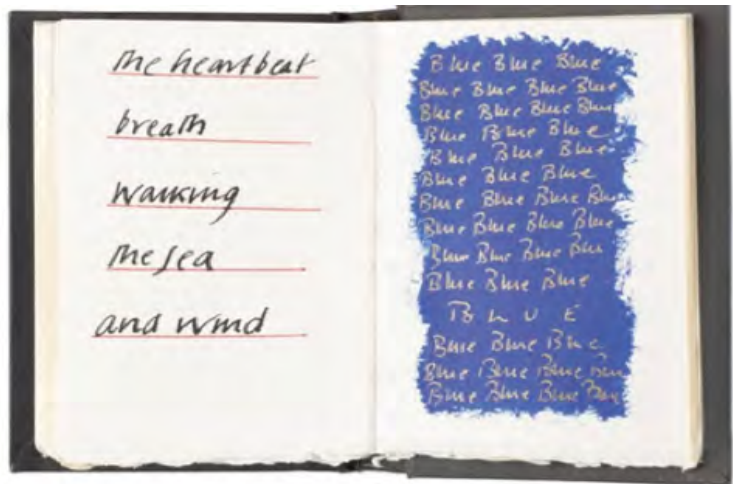 the heartbeat
breath
walking
the sea
and wind
Blue Blue Blue
Blue Blue Blue Blue
Blue Blue Blue Blue
Blue Blue Blue
Blue Blue Blue
Blue Blue Blue
Blue Blue Blue Blue
Blue Blue Blue Blue
Blue Blue Blue Blue
Blue Blue Blue
B L U E
Blue Blue Blue
Blue Blue Blue Blue
Blue Blue Blue